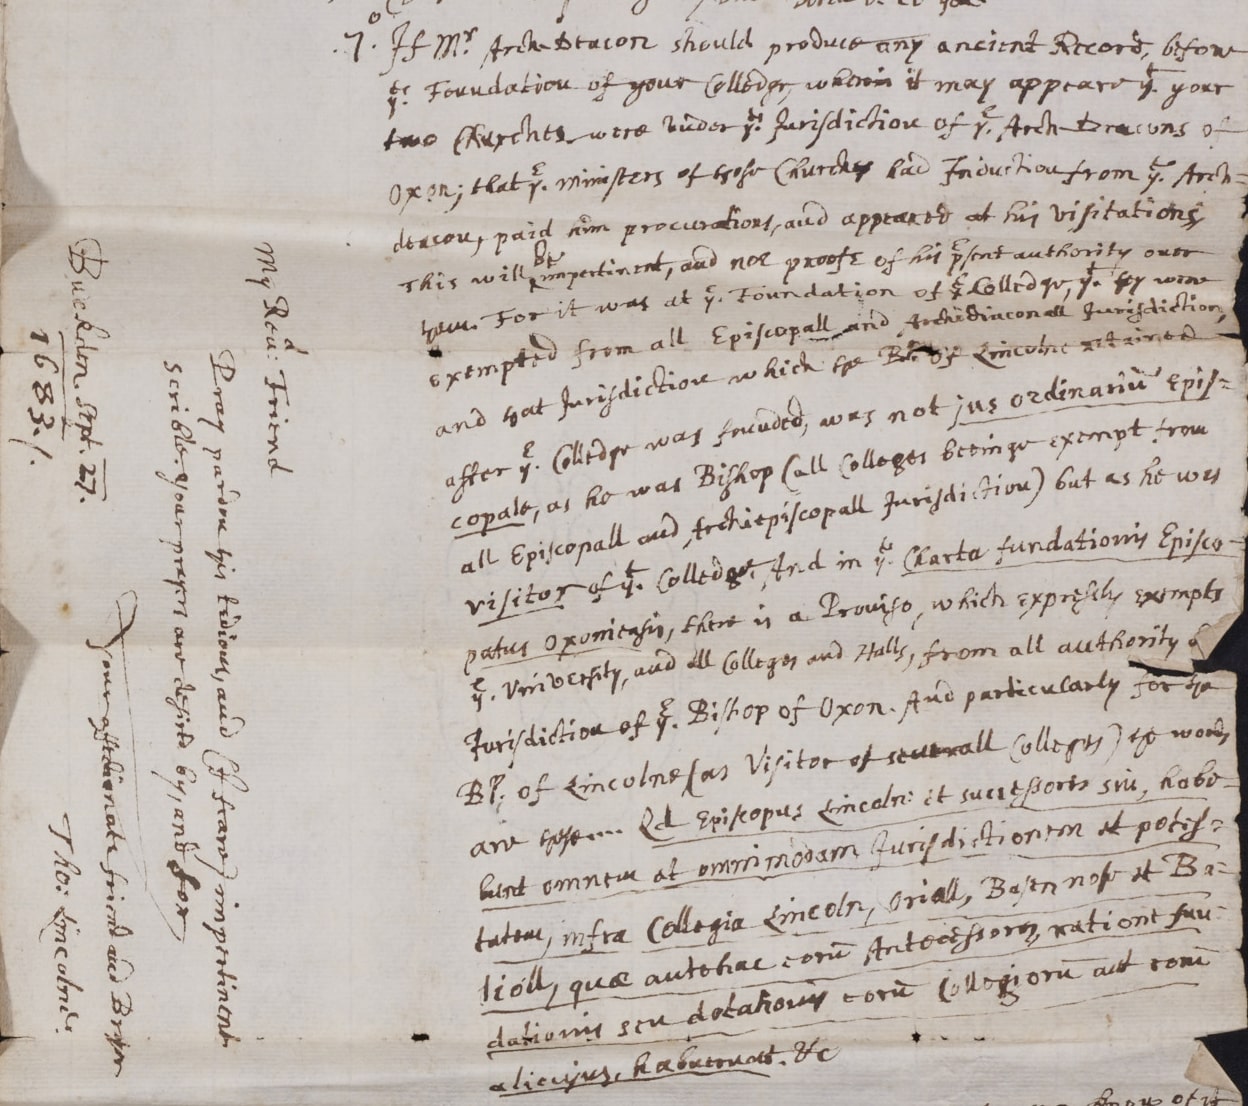 .7.º If Mr Arch-Deacon should produce any ancient Record, before
ye. Foundation of your Colledge, wherein it may appeare yt. your
two Churches were under ye. Jurisdiction of ye. Arch-Deacons of
Oxon; that ye. ministers of those Churches had Induction from ye. Arch=
deacon, paid him procurations, and appeared at his Visitations,
This will be impertinent, and noe proofe of his psent authority over
them. For it was at ye. Foundation of ye Colledge, yt. they were
exempted from all Episcopall and Archidiaconall Jurisdiction,
and that Jurisdiction which the Bp. of Lincolne retained
after ye. Colledge was founded, was not jus ordinariū Epis=
copale, as he was Bishop (all Colleges beeinge exempt from
all Episcopall and Archiepiscopall Jurisdiction) but as he was
Visitor of yt. Colledge. And in ye. Charta fundationis Episco=
patus Oxoniensis, there is a Proviso, which expresely exempts
ye. University, and all Colleges and Halls, from all authority &
Jurisdiction of ye. Bishop of Oxon. And particularly for the
Bp. of Lincolne (as Visitor of severall Colleges) the words
are these Qd Episcopus Lincoln: et successores sui, habe=
bunt omnem et omnimodam Jurisdictionem et potes=
tatem, infra Collegia Lincoln, Oriall, Basen nose et Ba=
lioll, quæ antehac eorū Antecessores, ratione fun=
dationis seu dotationis eorū Collegiorū aut eorū
alicujus, habuerunt. &c
know of it
My Revd: Friend
Pray pardon this tidious, and (I feare) impertinent
scrible. Your prayers are desired by, and for
Your affectionate friend and Brother
Tho: Lincolne:
Buckden Sept. 27.
1683./.